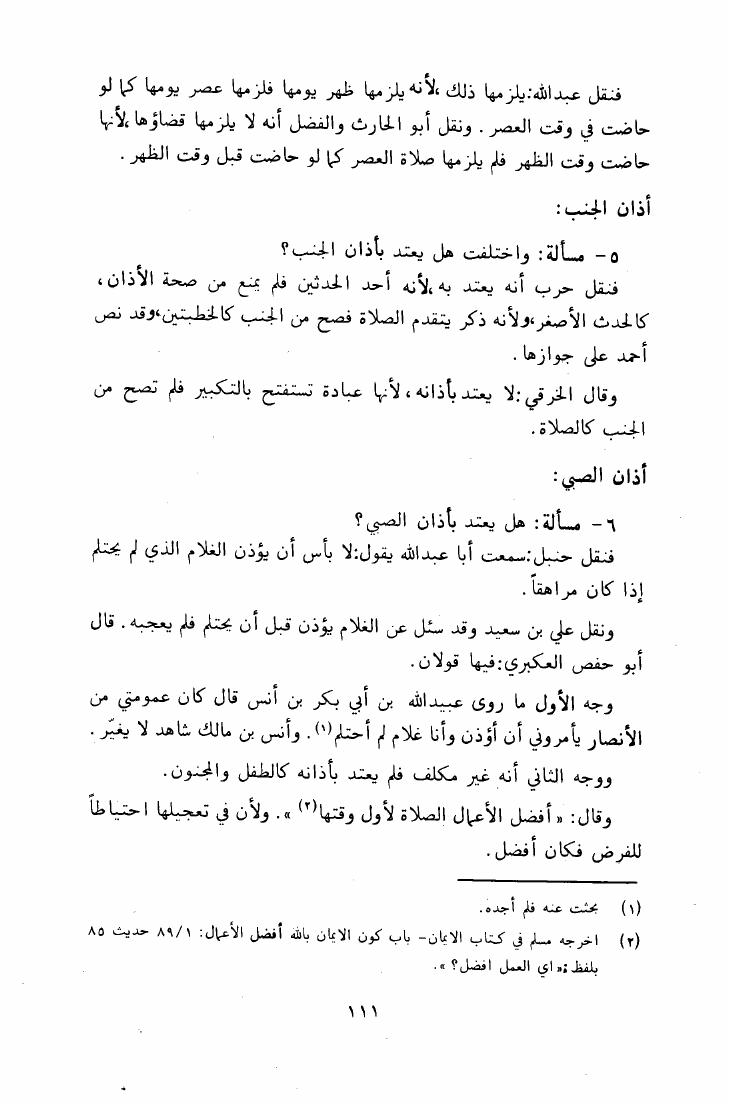 فنقل عبدالله:يلزمها ذلك ،لأنه يلزمها ظهر يومها فلزمها عصر يومها كما لو
حاضت في وقت العصر . ونقل أبو الحارث والفضل أنه لا يلزمها قضاؤها ،لأنها
حاضت وقت الظهر فلم يلزمها صلاة العصر كما لو حاضت قبل وقت الظهر .
أذان الجنب:
٥ - مسألة: واختلفت هل يعتد بأذان الجنب؟
فنقل حرب أنه يعتد به ،لأنه أحد الحدثين فلم يمنع من صحة الأذان ،
كالحدث الأصغر،ولأنه ذكر يتقدم الصلاة فصح من الجنب كالخطبتين،وقد نص
أحمد على جوازها.
وقال الخرقي:لا يعتد بأذانه ، لأنها عبادة تستفتح بالتكبير فلم تصح من
الجنب كالصلاة.
أذان الصبي:
٦ - مسألة: هل يعتد بأذان الصبي؟
فنقل حنبل:سمعت أبا عبدالله يقول:لا بأس أن يؤذن الغلام الذي لم يحتلم
إذا كان مراهقاً.
ونقل علي بن سعيد وقد سئل عن الغلام يؤذن قبل أن يحتلم فلم يعجبه . قال
أبو حفص العكبري:فيها قولان.
وجه الأول ما روى عبيدالله بن أبي بكر بن أنس قال كان عمومتي من
الأنصار يأمروني أن أؤذن وأنا غلام لم أحتلم(١). وأنس بن مالك شاهد لا يغيّر .
ووجه الثاني أنه غير مكلف فلم يعتد بأذانه كالطفل والمجنون.
وقال: « أفضل الأعمال الصلاة لأول وقتها(٢) ». ولأن في تعجيلها احتياطاً
للفرض فكان أفضل.
(١) بحثت عنه فلم أجده.
(٢) اخرجه مسلم في كتاب الايمان- باب كون الايمان بالله أفضل الأعمال: ٨٩/١ حديث ٨٥
بلفظ:« اي العمل افضل؟ ».
١١١